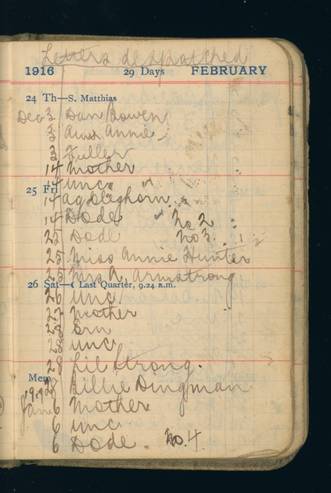 Letters despatched
1916 29 Days FEBRUARY
24 Th—S. Matthias
Dec 3 Dan Bowen
3 Aunt Annie
3 Fuller
14 Mother
14 unc "
25 Fri
14 Ag Cleghorn
14 Dode " No 2
25 Dode No 3.
25 Miss Annie Hunter
25 Mrs R. Armstrong
26 Sat—☾ Last Quarter, 9.24 a.m.
26 unc
27 Mother
28 Ern
28 unc
28 Lil Strong.
Mem.
27 Lillie Dingman
Jan 6 Mother
6 unc
6 Dode. No. 4.